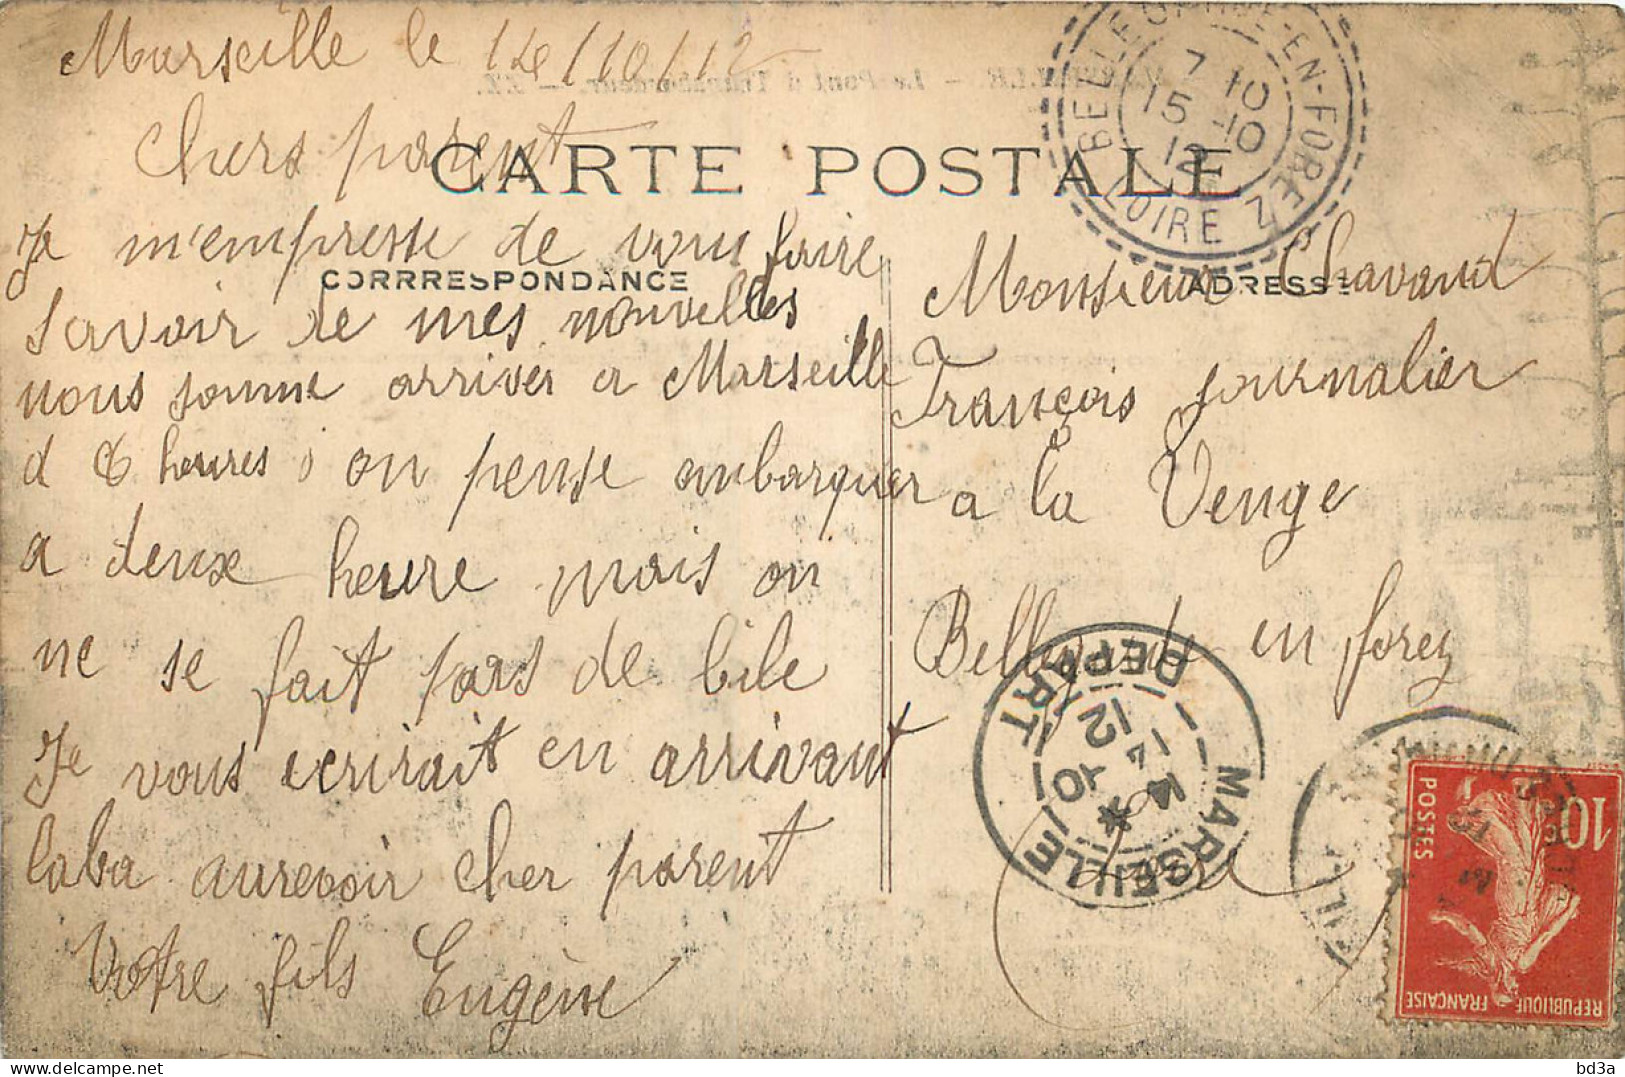 Marseille le 14/10/12
Chers parent
CARTE POSTALE
CORRRESPONDANCE
ADRESSE
Je m'empresse de vous faire
savoir de mes nouvelles
nous somme arriver a Marseille
a 6 heures on pense embarquer
a deux heure mais on
ne se fait pas de bile
Je vous ecrirait en arrivant
laba aurevoir cher parent
Votre fils Eugène
Monsieur Chavand
François journalier
a la Venge
Bellegarde en forez
Loire
BELLEGARDE-EN-FOREZ
LOIRE
7 10
15 -10
12
MARSEILLE DEPART
14 -10
12
10
POSTES
REPUBLIQUE FRANÇAISE
bd3a